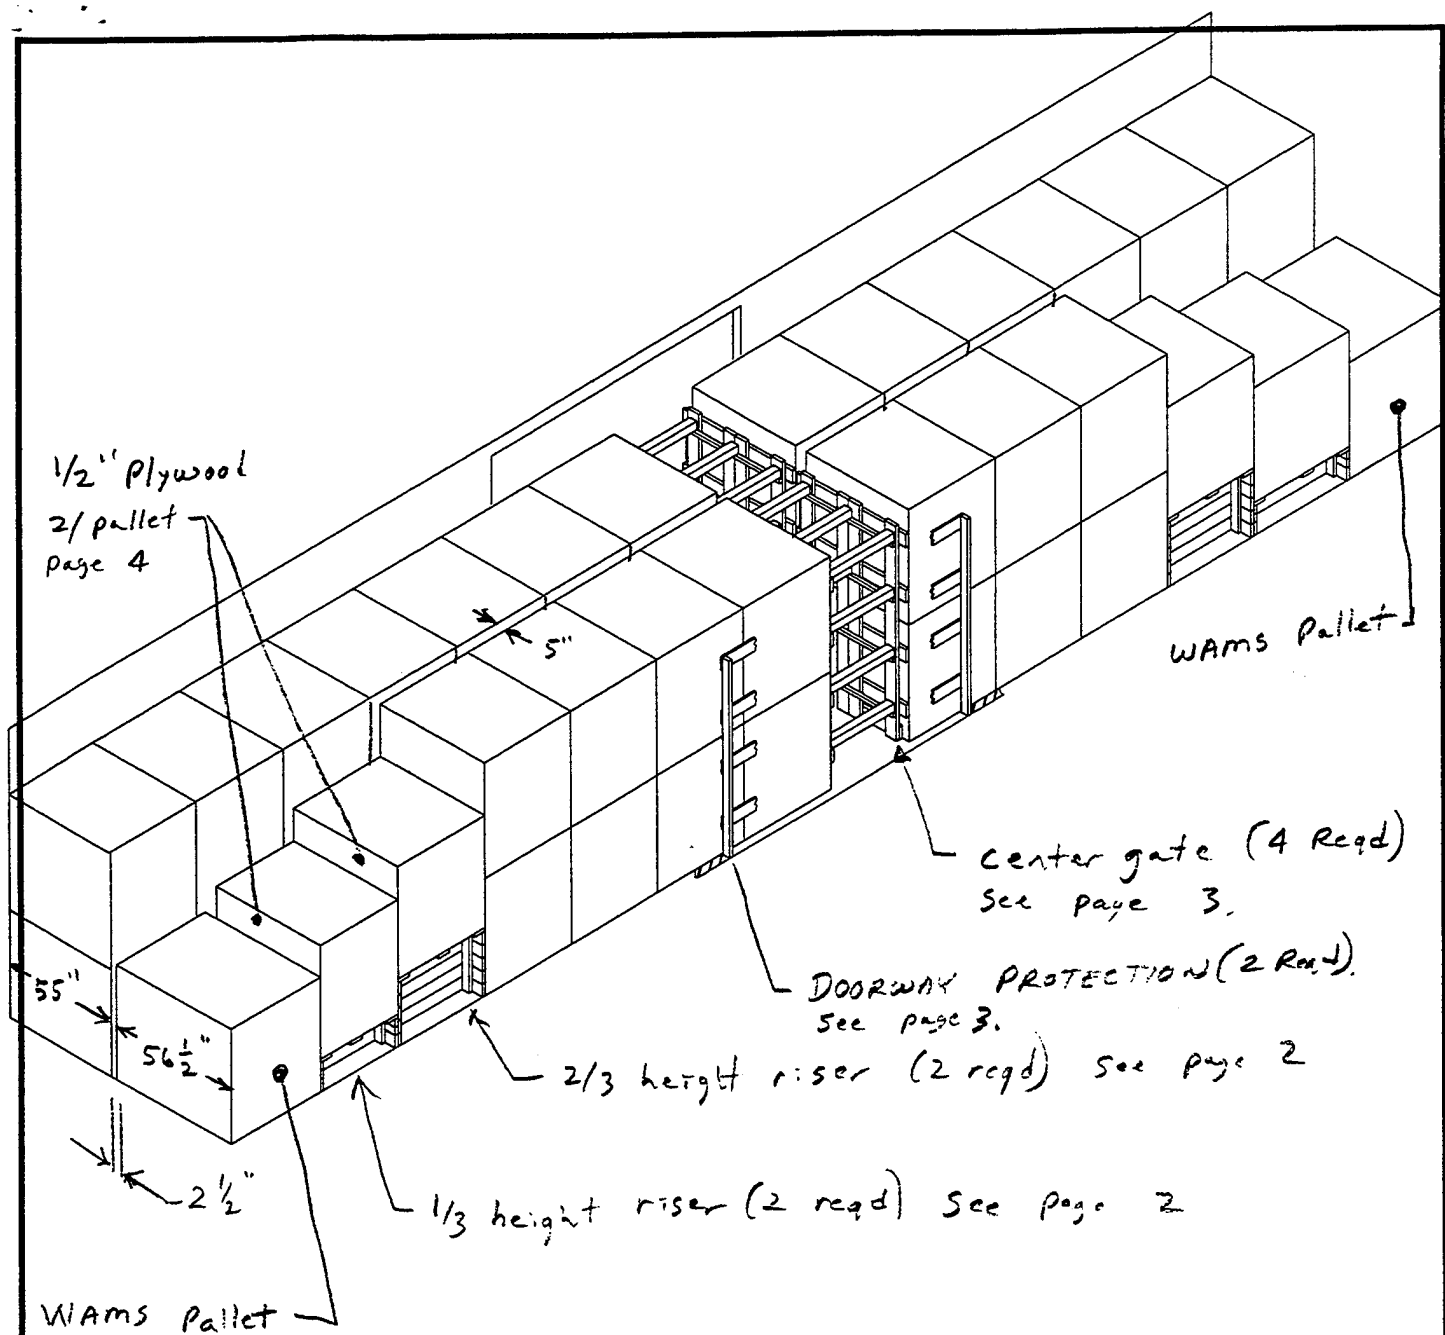 1/2" Plywood
2/ pallet
page 4
5"
WAMS Pallet
center gate (4 Reqd)
See page 3.
DOORWAY PROTECTION (2 Reqd).
See page 3.
2/3 height riser (2 reqd) See page 2
55"
56 1/2"
2 1/2"
1/3 height riser (2 reqd) See page 2
WAMS Pallet